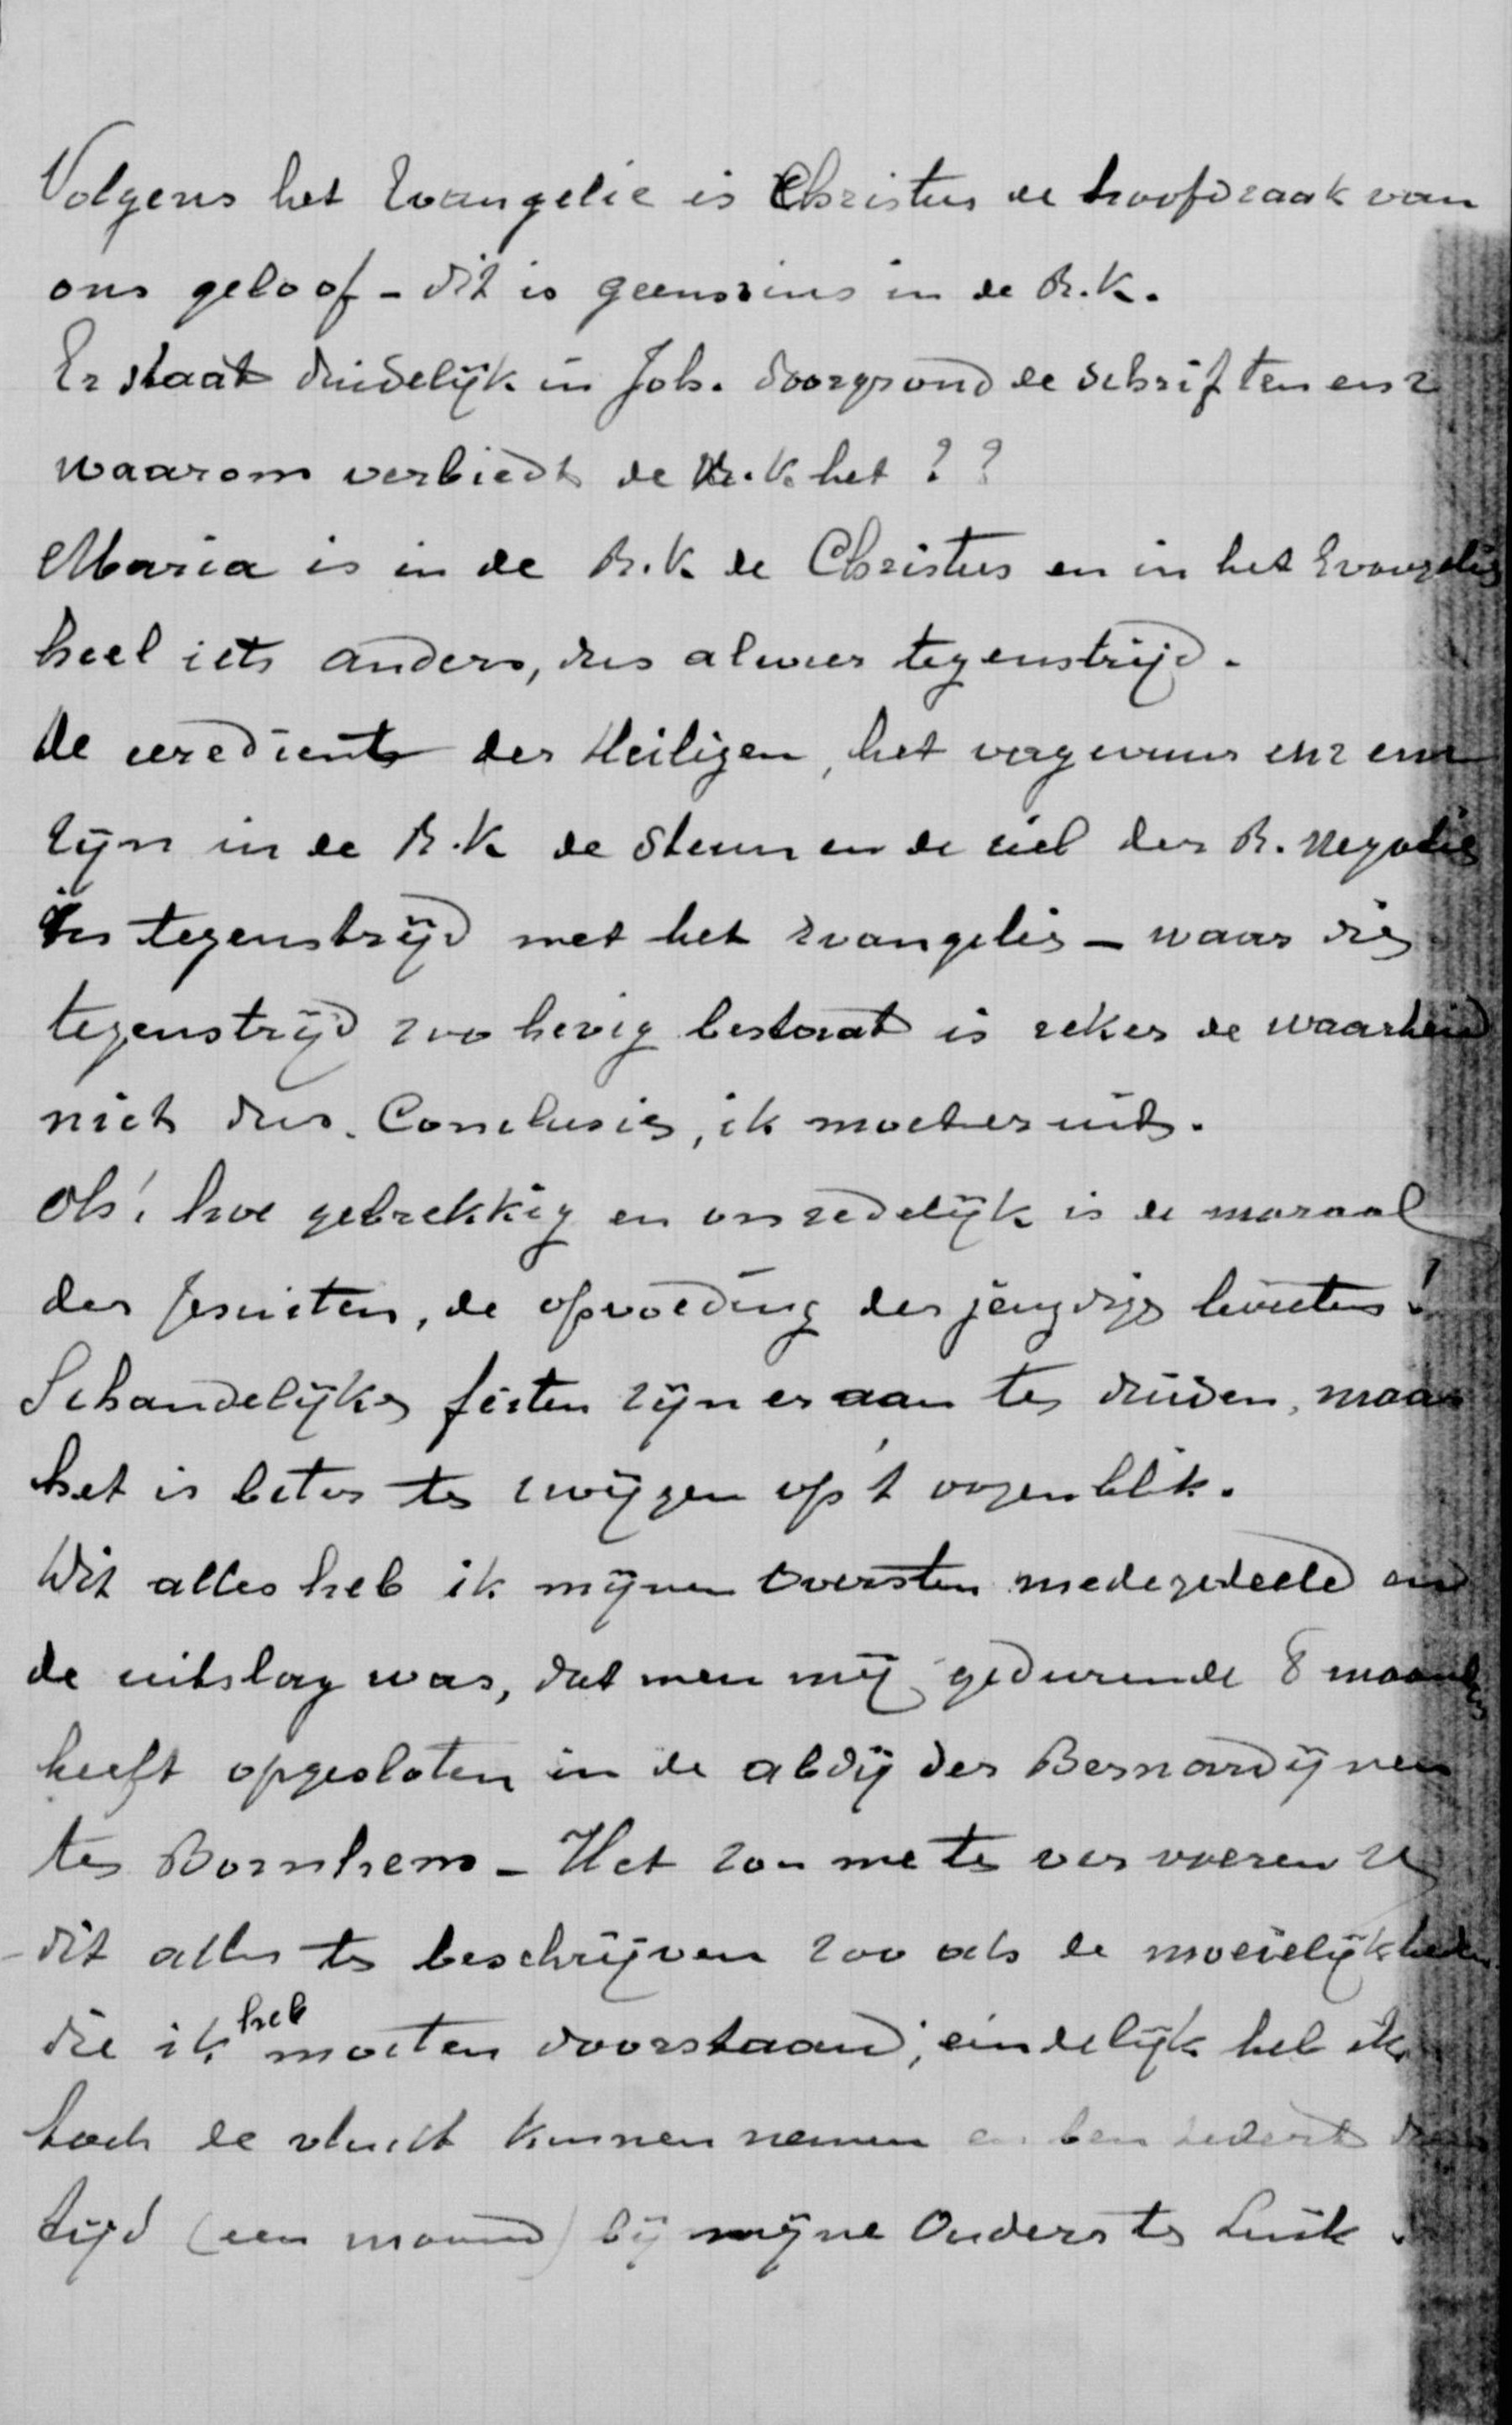 Volgens het Evangelie is Christus de hoofdzaak van
ons geloof - dit is geenszins in de R.K.
Er staat duidelijk in Joh. doorgrond de schriften enz
waarom verbiedt de R.K. het ??
Maria is in de R.K. de Christus en in het Evangelie
heel iets anders, dus alweer tegenstrijd.
De eeredienst der Heiligen, het vagevuur enz enz
zijn in de R.K. de steun en de ziel der R.
tegenstrijd met het Evangelie - waar die
tegenstrijd zoo hevig bestaat is zeker de waarheid
niet dus. Conclusie, ik moet er uit.
Oh! hoe gebrekkig en onzedelijk is de moraal
der Jesuiten, de opvoeding der jeugdige levieten!
Schandelijke feiten zijn er aan te duiden, maar
het is beter te zwijgen op 't oogenblik.
Dit alles heb ik mijnen Oversten medegedeeld en
de uitslag was, dat men mij gedurende 8 maanden
heeft opgesloten in de abdij der Bernardijnen
te Bornhem - Het zou me te ver voeren U
dit alles te beschrijven zoo als de moeielijkheden
die ik heb moeten doorstaan; eindelijk heb ik
toch de vlucht kunnen nemen en ben sedert dien
tijd (een maand) bij mijne Ouders te Luik.